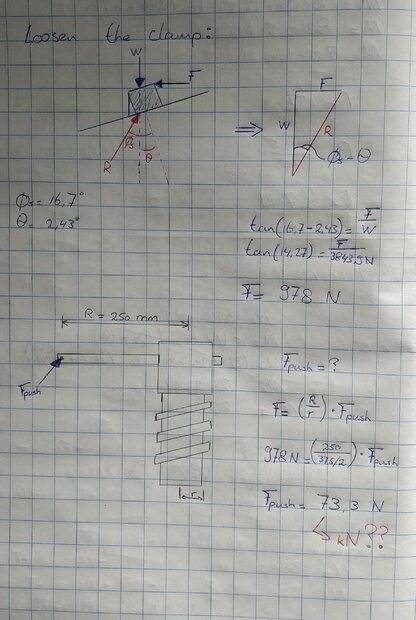 Loosen the clamp:
W
F
R
ϕs
θ
⇒
F
W
R
ϕs - θ
ϕs = 16,7°
θ = 2,43°
tan(16,7-2,43) = F/W
tan(14,27) = F/3843,9N
F = 978 N
R = 250 mm
Fpush
r
Fpush = ?
F = (R/r) · Fpush
978 N = (250/(37,5/2)) · Fpush
Fpush = 73,3 N
↳ kN??